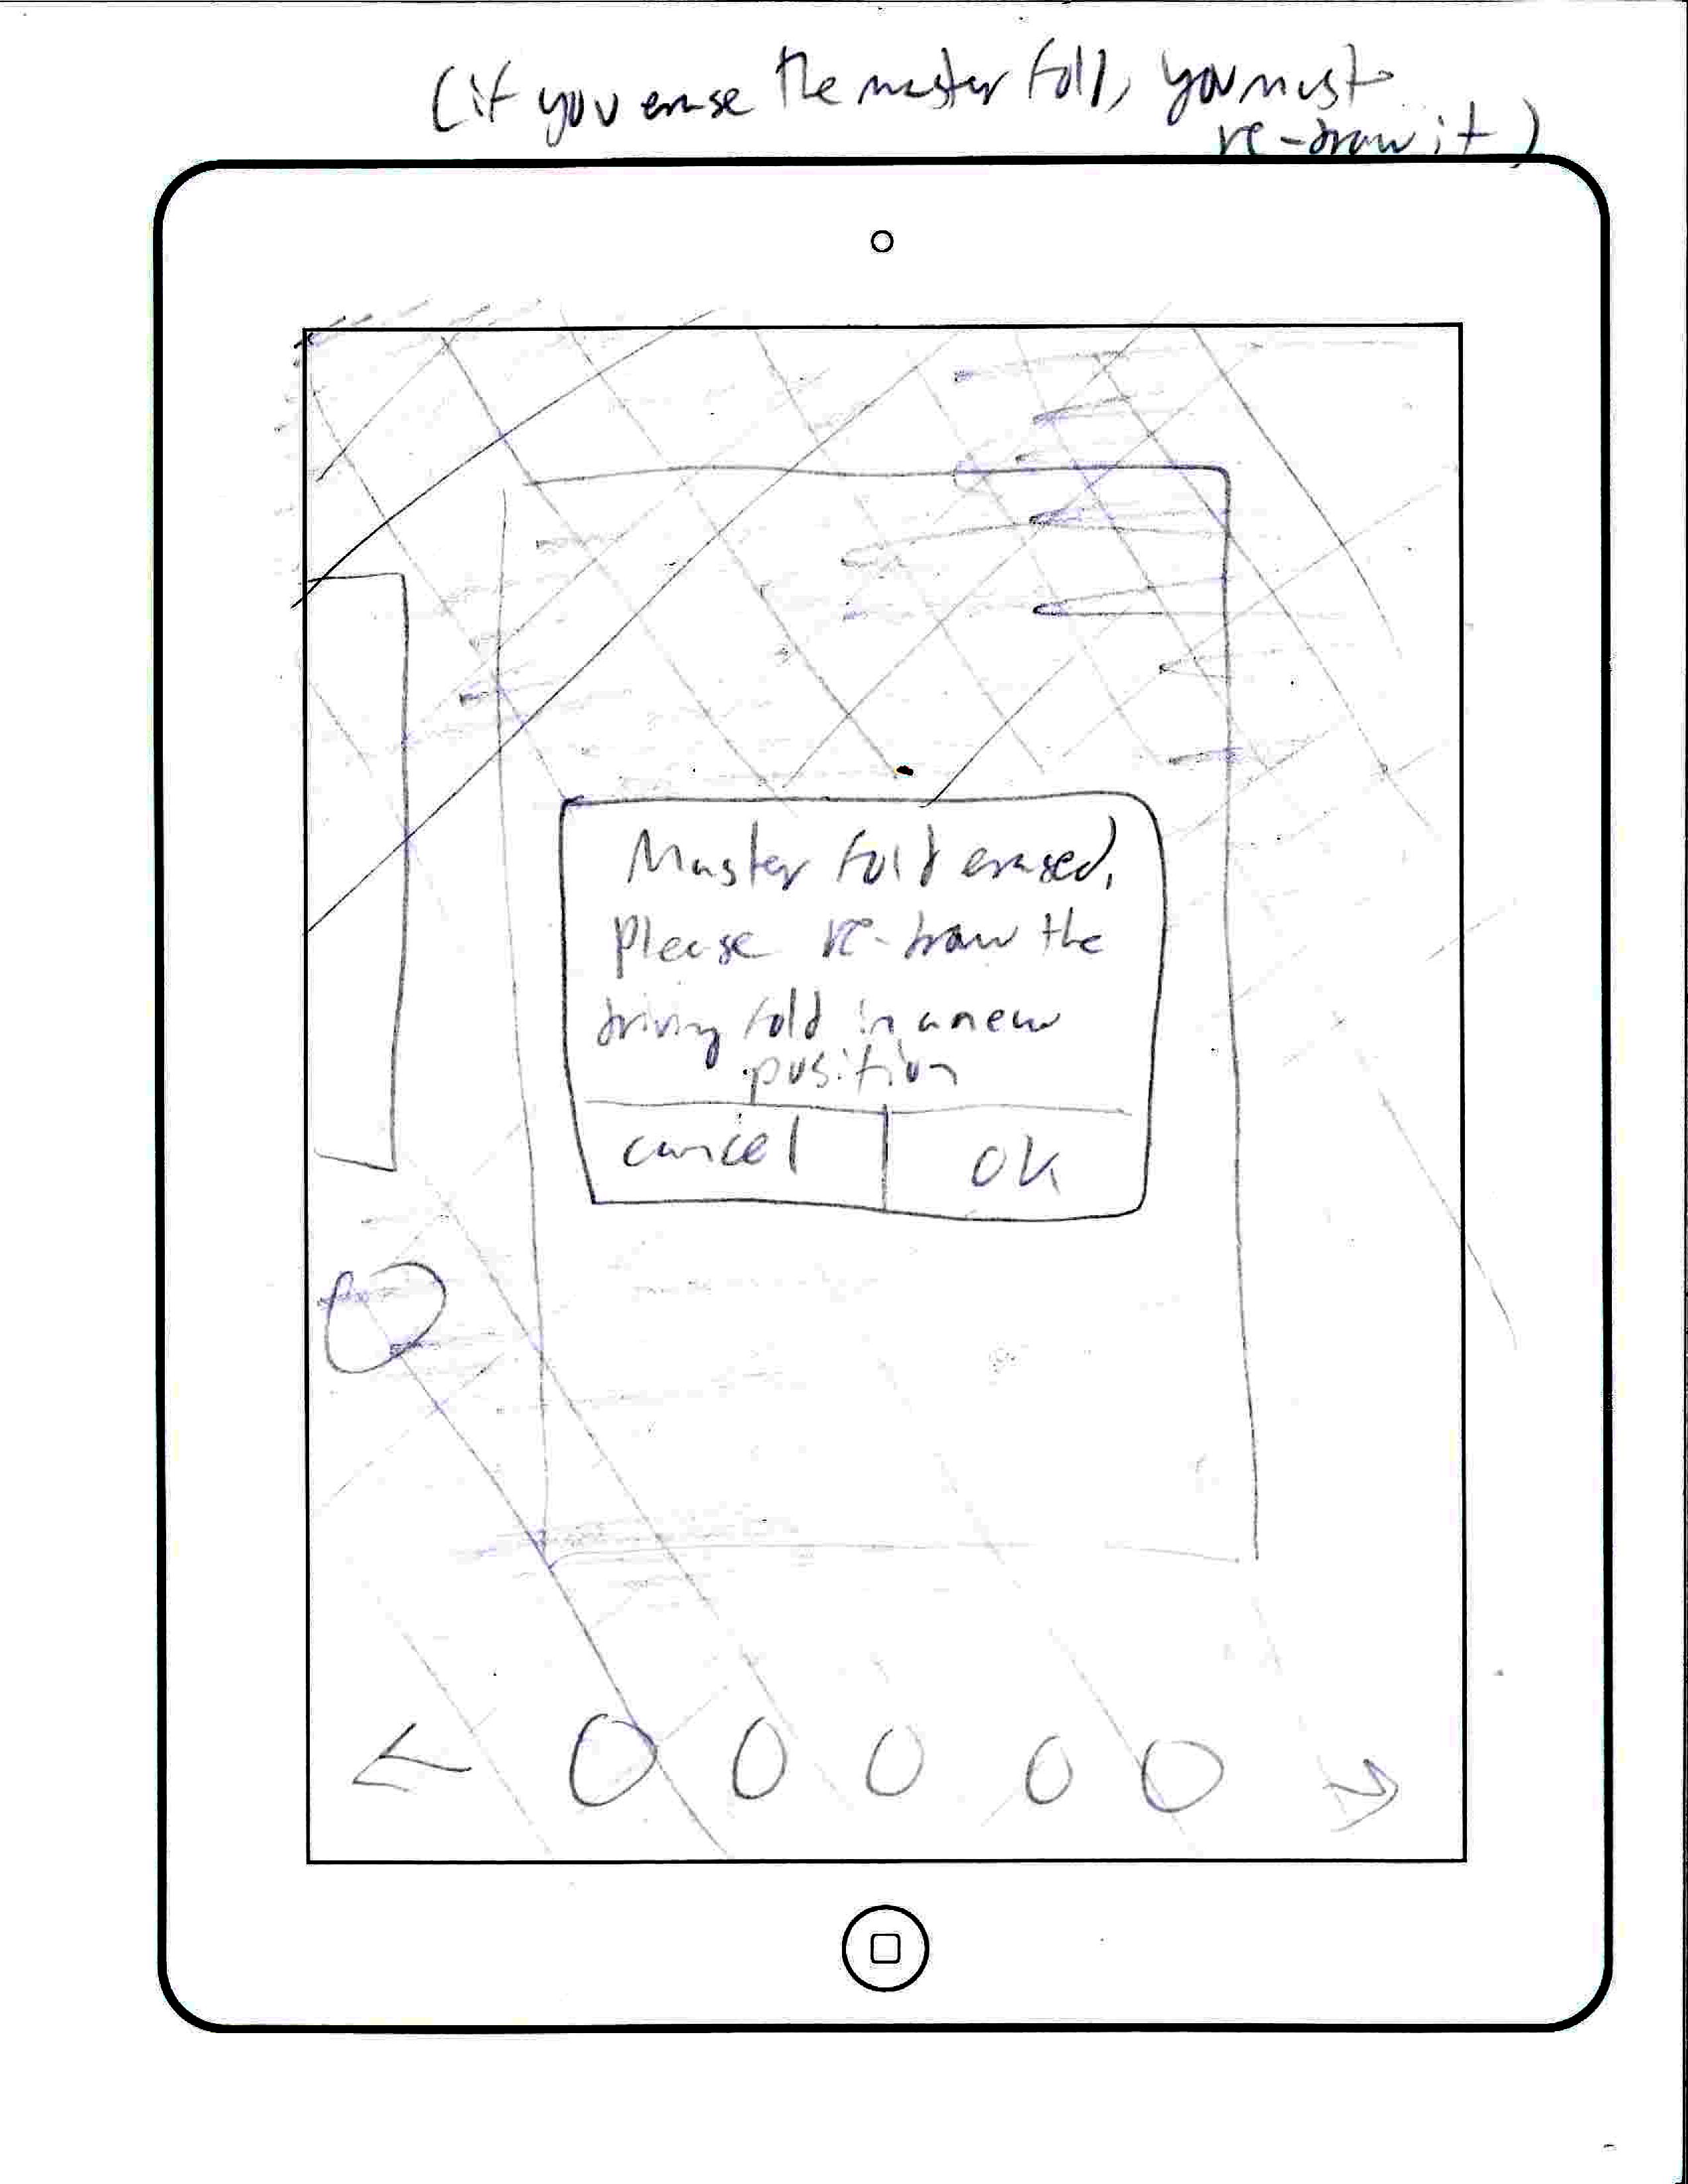 (if you erase the master fold, you must
re-draw it)
Master fold erased.
Please re-draw the
driving fold in a new
position
cancel
OK